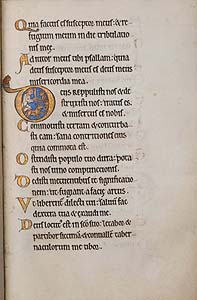 Quia factus es susceptor meus: & re
fugium meum in die tribulatio
nis mee.
Adiutor meus tibi psallam: quia
deus susceptor meus es deus meus
misericordia mea.
Deus reppulisti nos & de
struxisti nos: iratus es
& misertus es nobis.
Commouisti terram & conturba
sti eam: sana contritiones eius
quia commota est.
Ostendisti populo tuo dura: pota
sti nos uino compunctionis.
Dedisti metuentibus te significatio
nem: ut fugiant a facie arcus.
Vt liberentur dilecti tui: saluum fac
dextera tua & exaudi me.
Deus locutus est in sc̄o suo: letabor &
partibor siccimā & conuallē taber
naculorum metibor.